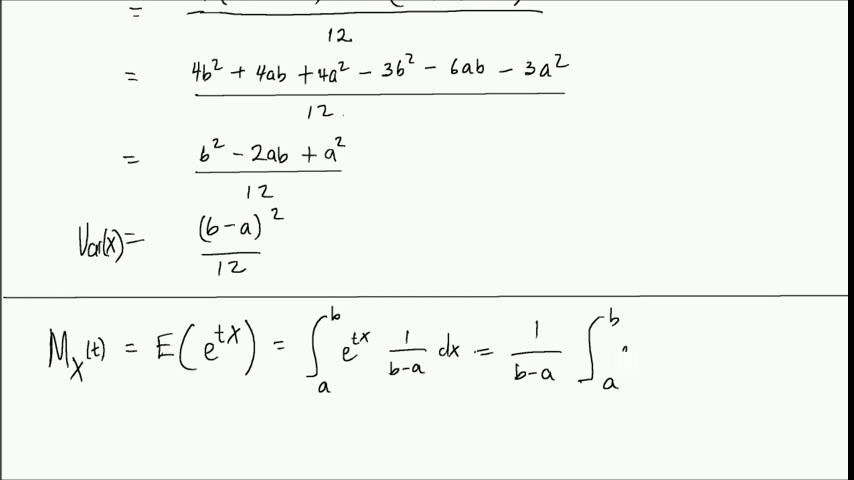 =
12
= 4b² + 4ab + 4a² - 3b² - 6ab - 3a²
12
= b² - 2ab + a²
12
Var(x) = (b-a)²
12
M_X(t) = E(e^{tX}) = ∫_a^b e^{tx} 1/(b-a) dx = 1/(b-a) ∫_a^b